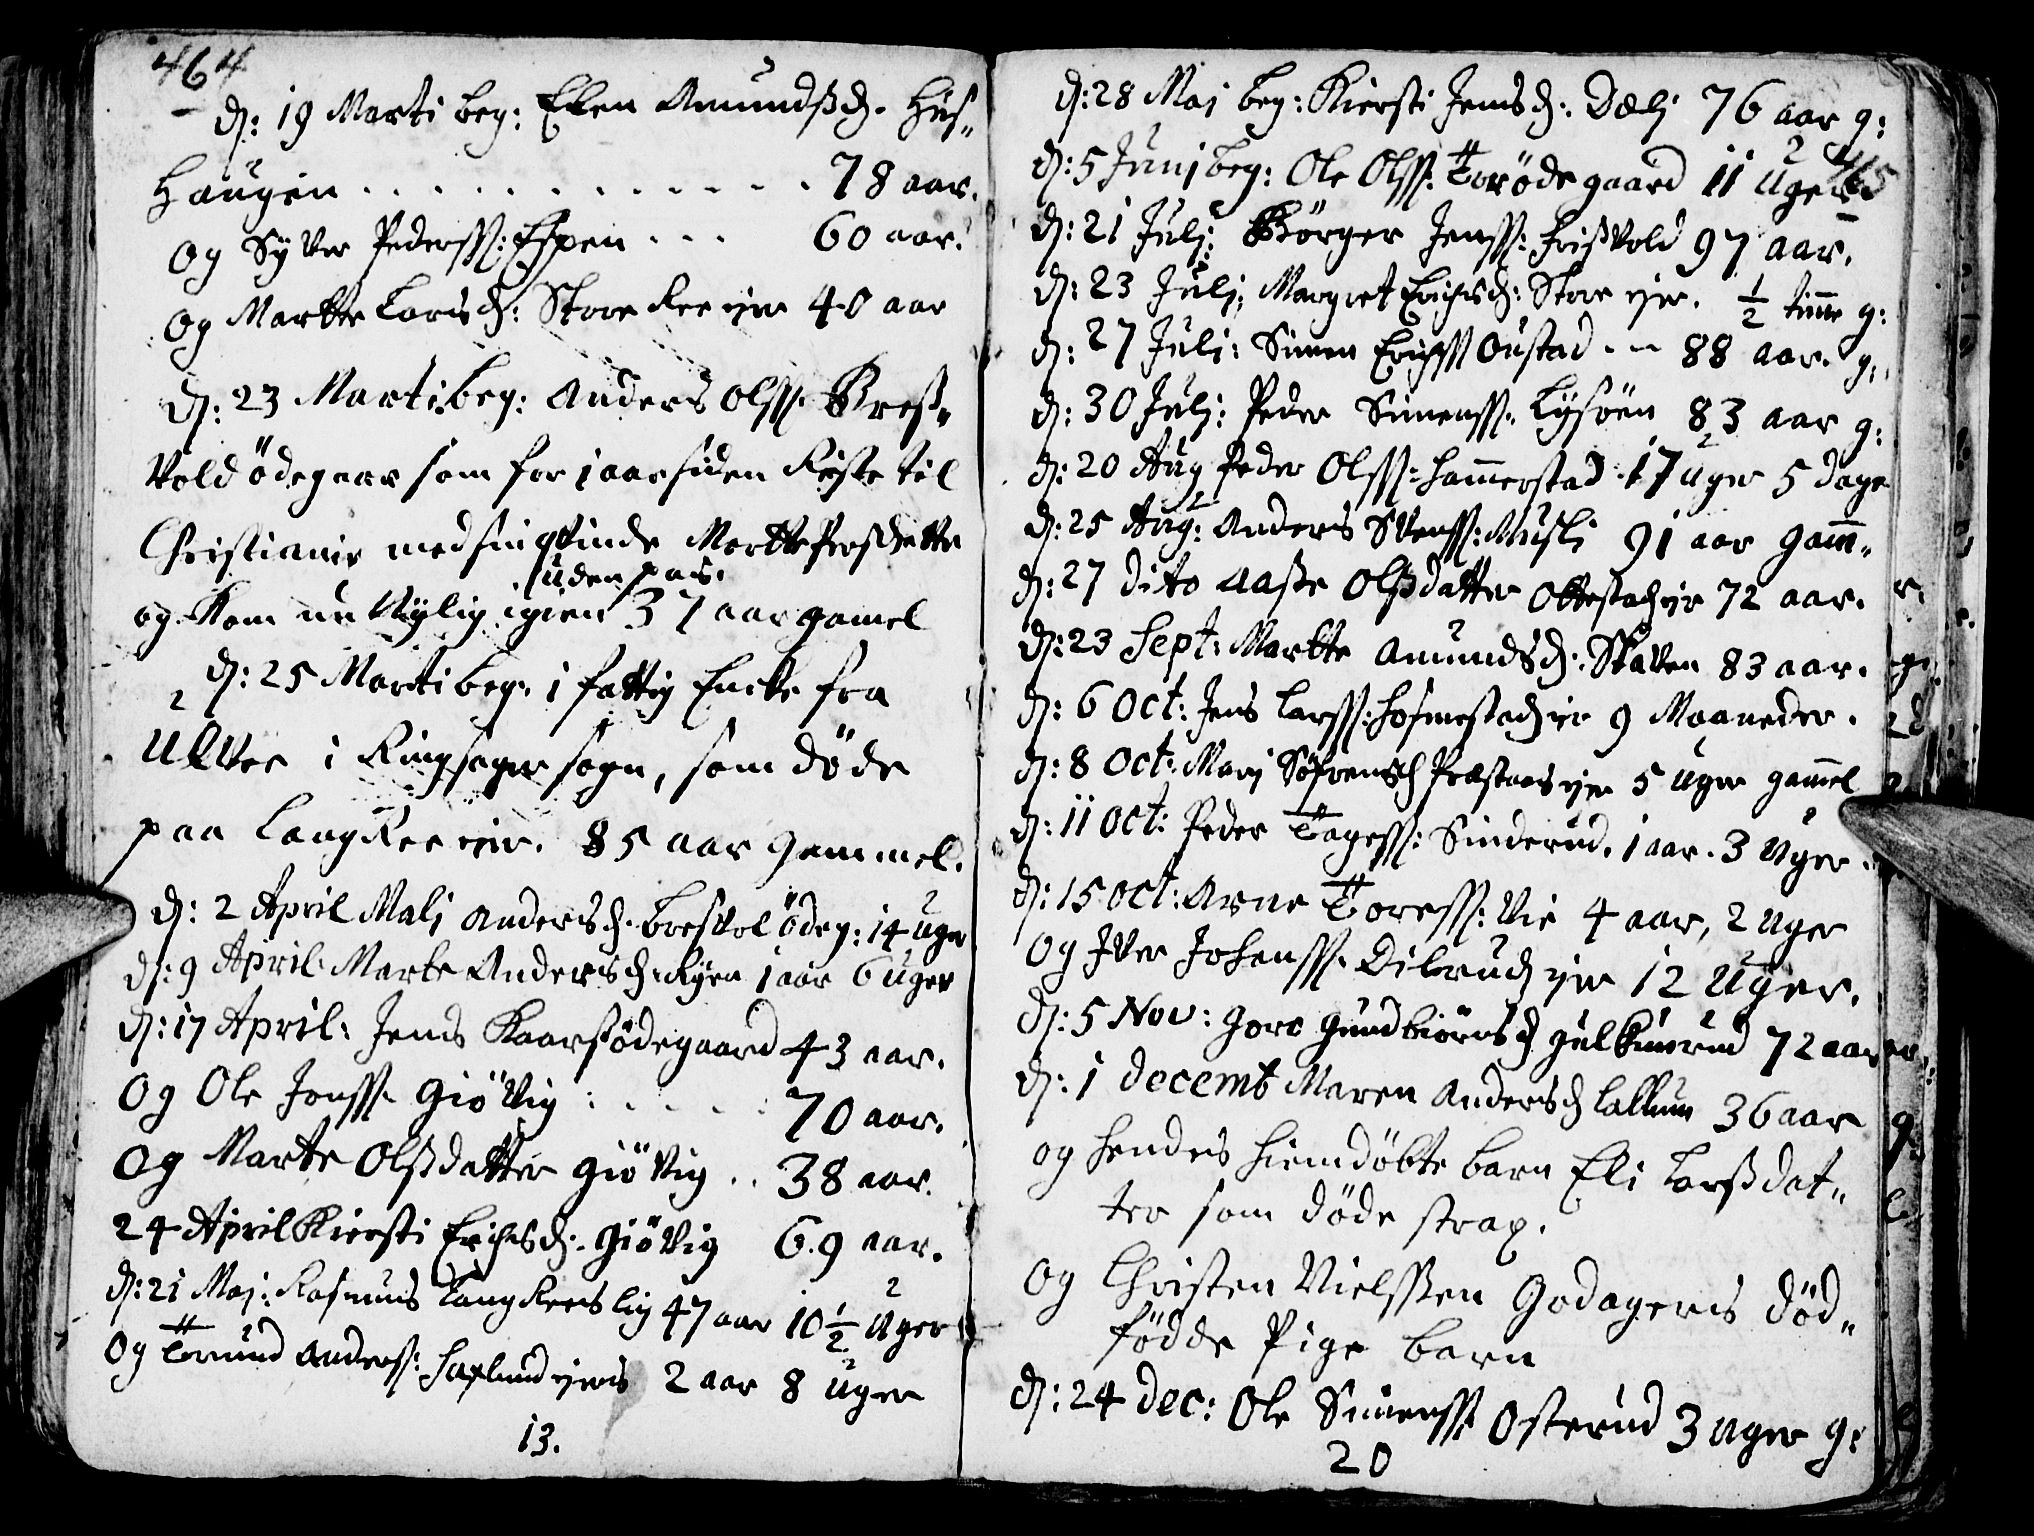 464
d: 19 Marti beg: Ellen Amundsd. Hus-
Haugen . . . . . . . . . . . . . 78 aar.
og Syver Pederss: Espen . . . 60 aar.
og Marthe Larsd: Store Ree eje 40 aar
d: 23 Marti beg: Anders Olss. Bress-
vold ødegaar som for 1 aar siden Reiste til
Christiania med sin qvinde Marthe Persdatter
uden pas.
og kom nu Nylig igien 37 aar gamel
d: 25 Marti beg: 1 fattig Encke fra
Ulvee i Ringsager sogn, som døde
paa Lang Ree eje. 85 aar gammel.
d: 2 April Mali Andersd. Bresvol ødeg: 14 uger
d: 9 April Marte Andersd. Ryen 1 aar 6 uger
d: 17 April: Jens Kaarsødegaard 43 aar.
Og Ole Jonss. Giøvig . . . . . 70 aar.
Og Marte Olsdatter Giøvig . . 38 aar.
24 April Kiersti Erichsd. Giøvig 69 aar.
d: 21 Maj: Rasmus Lang Rees lig 47 aar 10 1/2 uger
Og Trund Anderss: Haslund ejes 2 aar 8 uger
13.
d: 28 Maj beg: Kiersti Jensd: Dæli 76 aar g:
465
d: 5 Junj beg: Ole Olss. Torødegaard 11 uger
d: 21 Julj: Børger Jenss: Frissvold 97 aar.
d: 23 Julj: Margret Erichsd: Store eje. 1/2 time g:
d: 27 Julj: Simen Erichss Oustad . . 88 aar. g:
d: 30 Julj: Peder Simenss. Lysøen 83 aar g:
d: 20 Aug Peder Olss: Hamerstad 17 uger 5 dage
d: 25 Aug: Anders Svenss: Musli 91 aar gam-
d: 27 dito Aasse Olsdatter Ottestad eje 72 aar.
d: 23 Sept: Marthe Amundsd: Staven 83 aar.
d: 6 Oct: Jens Larss: Hofmestad eje 9 Maaneder.
d: 8 Oct: Mari Søfrensd Præstaas eje 5 uger gamel
d: 11 Oct: Peder Tagess: Sinderud. 1 aar. 3 uger
d: 15 Oct: Arne Toress: Vie 4 aar, 2 uger
og Iver Johanss. Dilerud eje 12 uger.
d: 5 Nov: Goro Gundbiørnsd Gulkinrud 72 aar
d: 1 decemb Maren Andersd Lallum 36 aar
og hendes hiemdøbte barn Eli Larsdat-
ter som døde strax.
Og Christen Nielssen Godagers død-
fødde Pige barn
d: 24 dec: Ole Simenss Osterud 3 uger g:
20